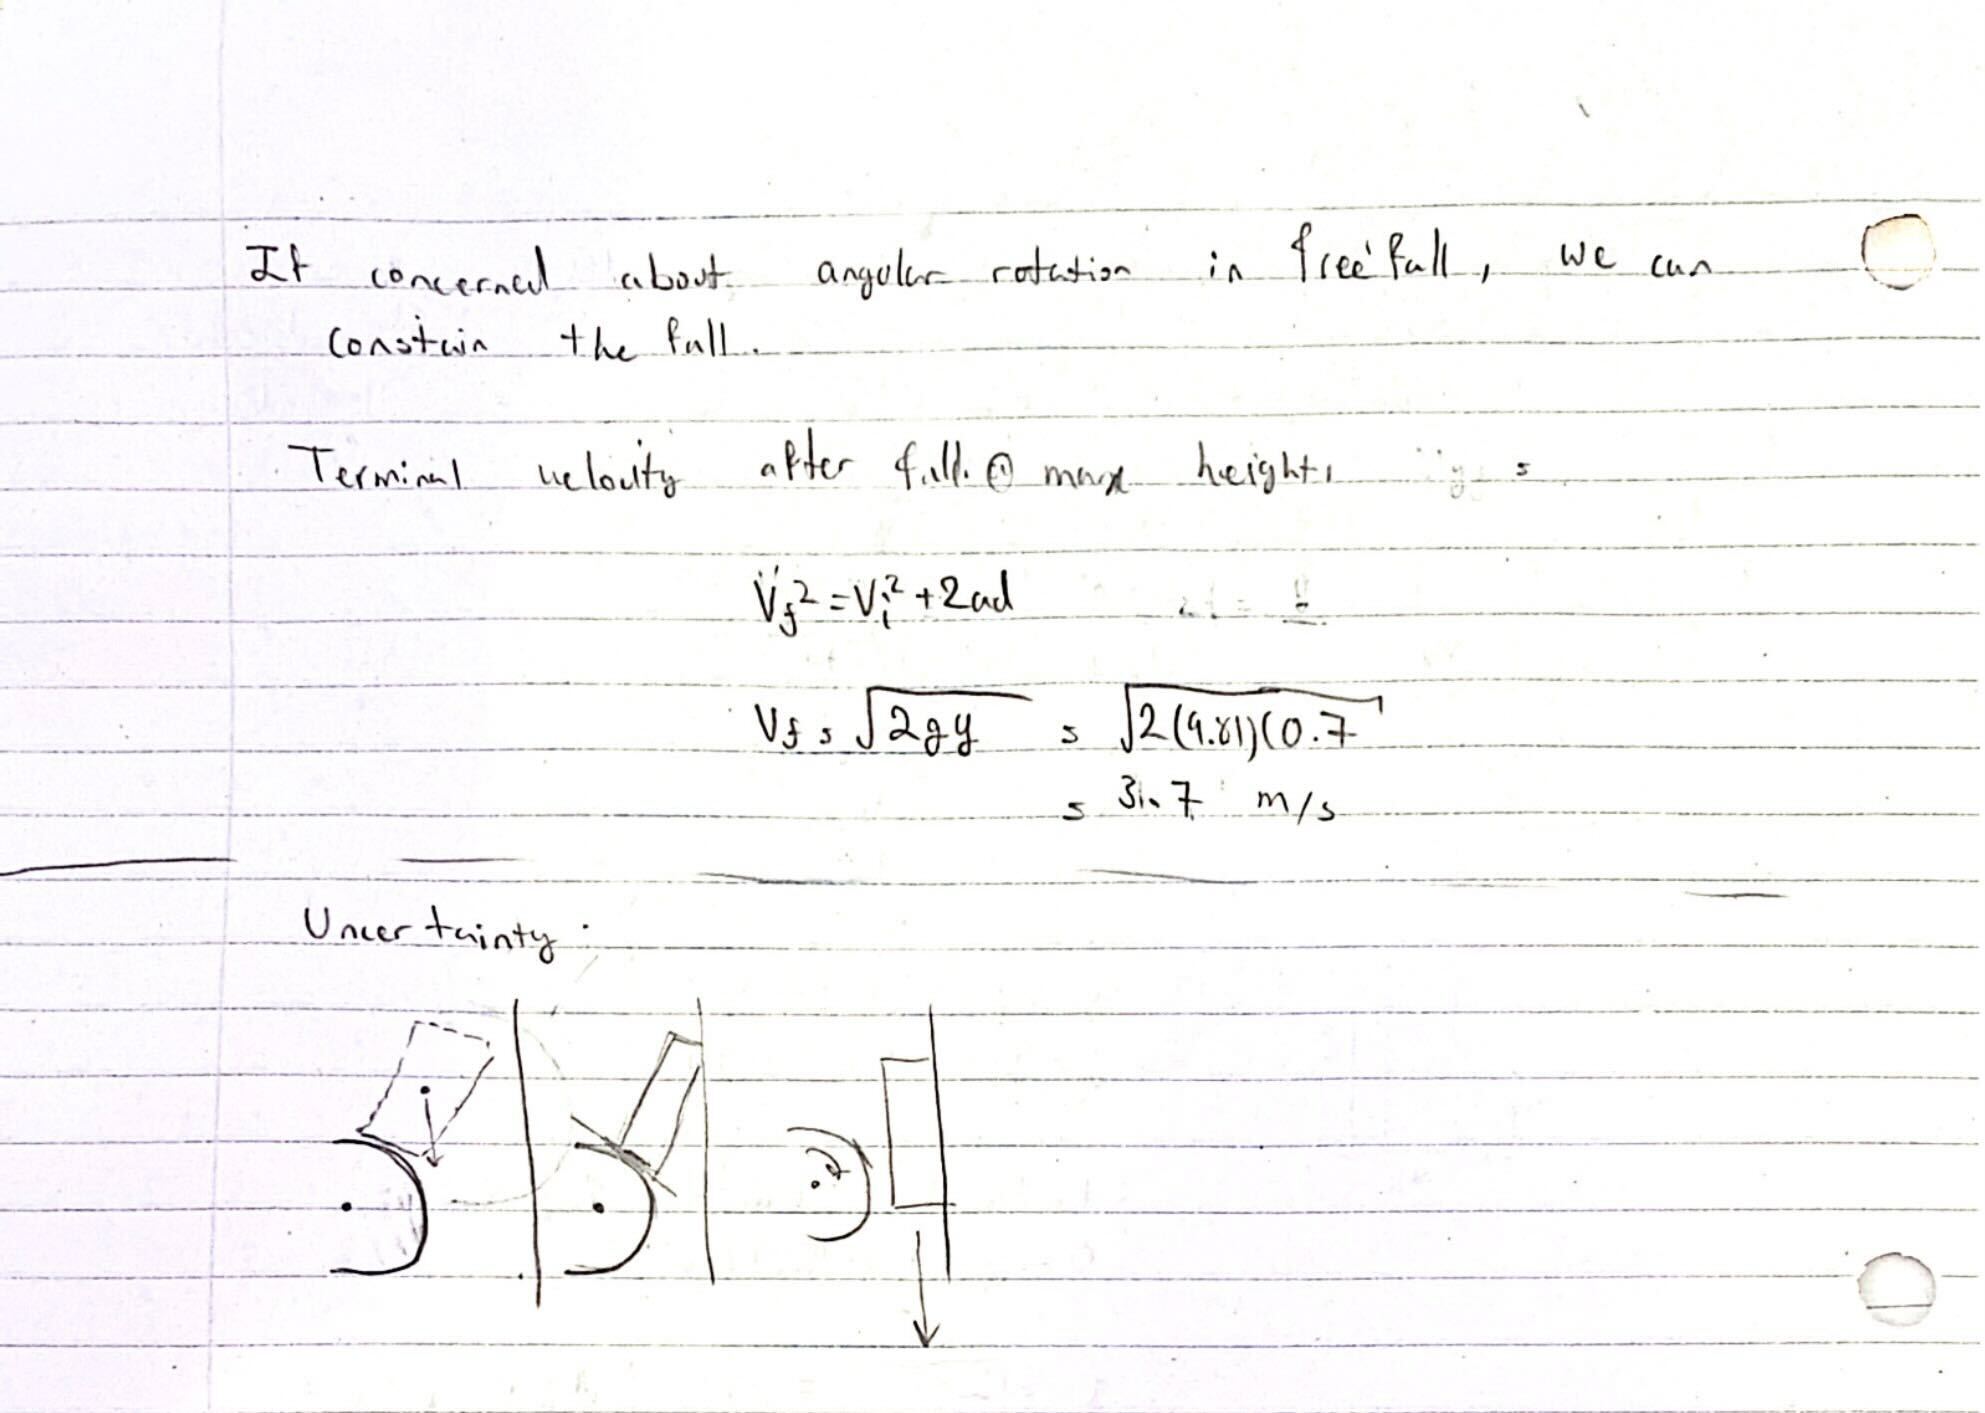 If concerned about angular rotation in free fall, we can
constrain the fall.
Terminal velocity after fall @ max height,
Vf² = Vi² + 2ad
Vf = √2gy = √2(9.81)(0.7
= 3.7 m/s
Uncertainty: